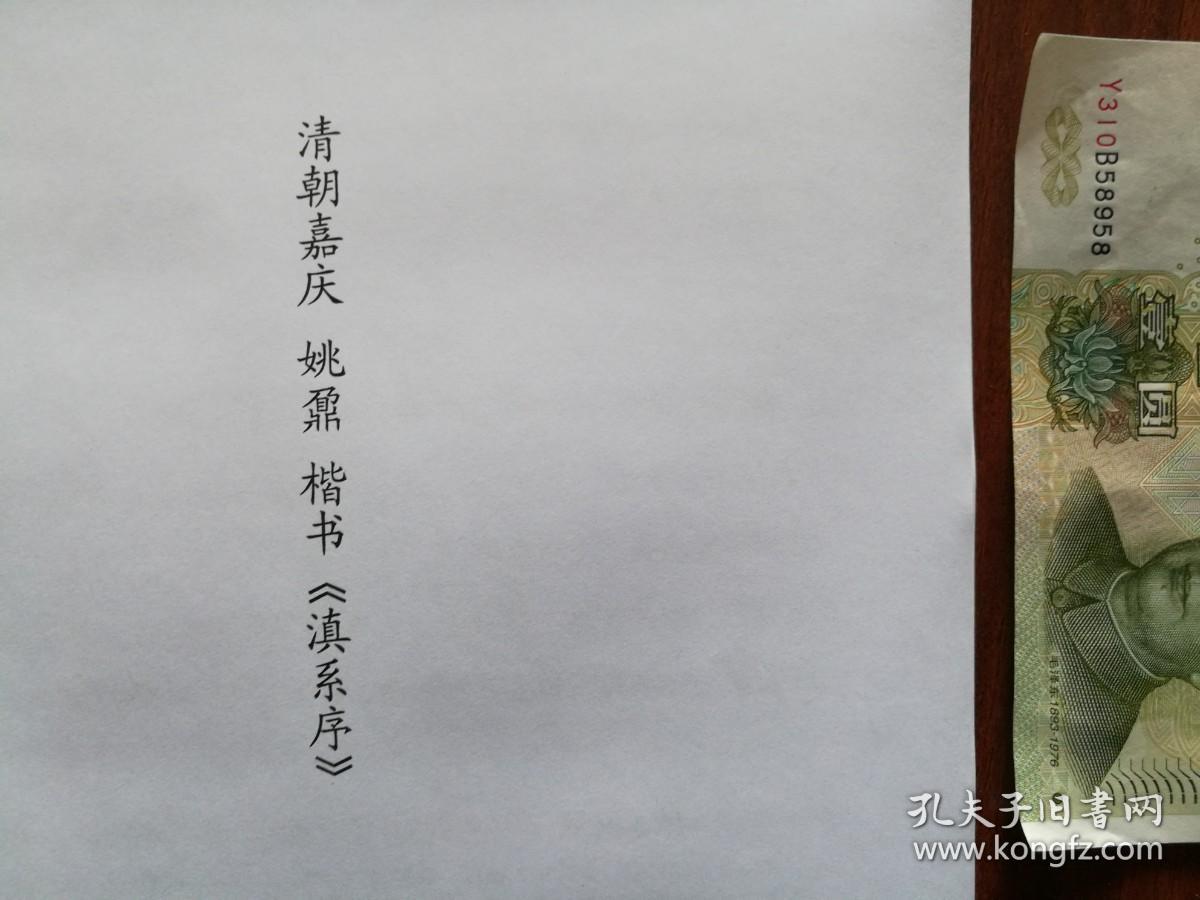 清朝嘉庆 姚鼐 楷书《滇系序》
Y310B58958
壹圆
毛泽东1893-1976
孔夫子旧書网
www.kongfz.com